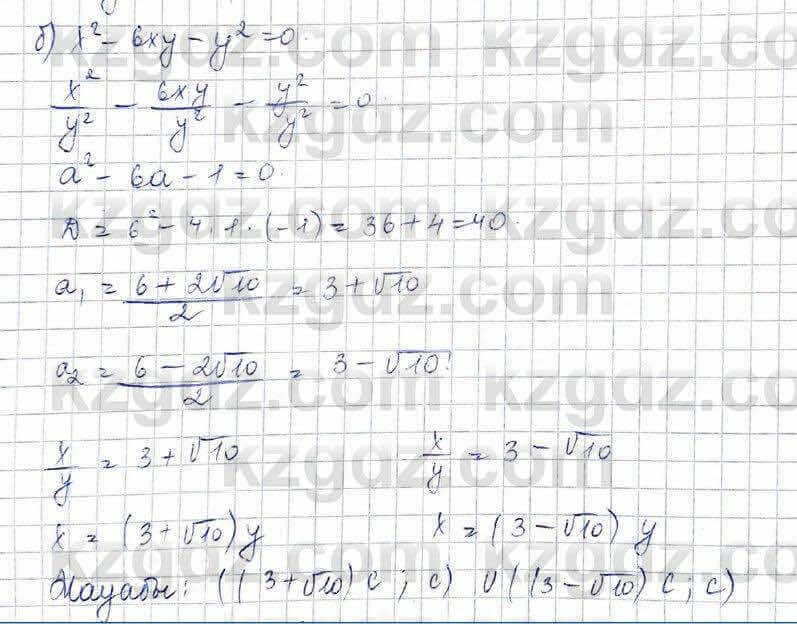 б) x² - 6xy - y² = 0.
x²/y² - 6xy/y² - y²/y² = 0.
a² - 6a - 1 = 0.
D = 6² - 4·1·(-1) = 36 + 4 = 40.
a₁ = (6 + 2√10)/2 = 3 + √10
a₂ = (6 - 2√10)/2 = 3 - √10.
x/y = 3 + √10 x/y = 3 - √10
x = (3 + √10) y x = (3 - √10) y
Жауабы: ((3 + √10) c ; c) ∪ ((3 - √10) c ; c)
kzgdz.com